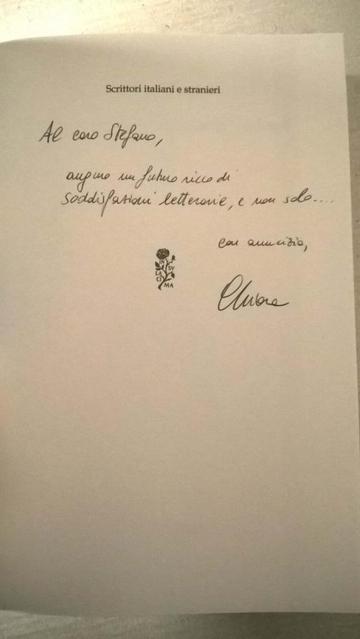 Scrittori italiani e stranieri
Al caro Stefano,
auguro un futuro ricco di
soddisfazioni letterarie, e non solo....
con amicizia,
Chiara
IN SV
LA CI
MA